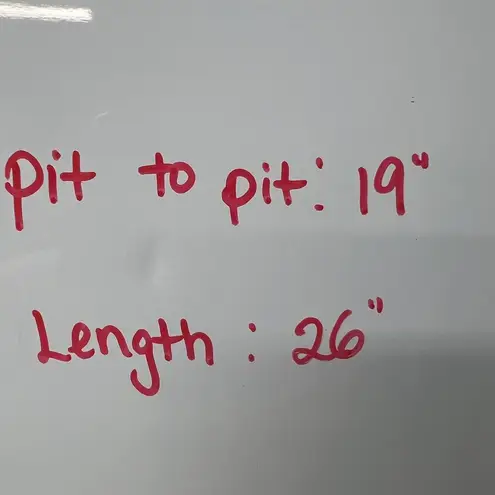 pit to pit: 19"
Length: 26"